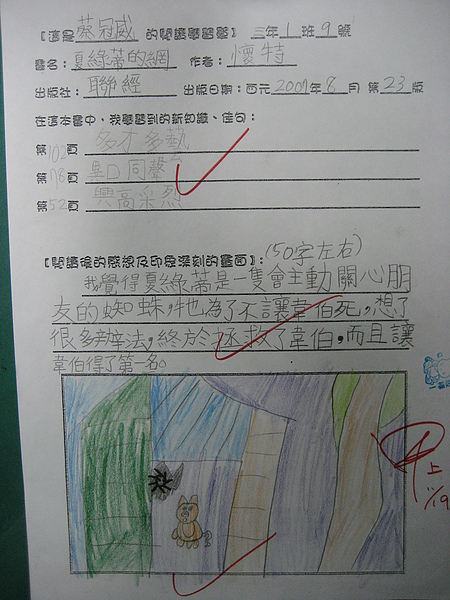 【這是 蔡冠威 的閱讀學習單】 三年 1 班 9 號
書名：夏綠蒂的網 作者：懷特
出版社：聯經 出版日期：西元 2007年 8 月 第 23 版
在這本書中，我學習到的新知識、佳句：
第102頁 多才多藝
第78頁 異口同聲
第52頁 興高采烈
【閱讀後的感想及印象深刻的畫面】：(50字左右)
我覺得夏綠蒂是一隻會主動關心朋
友的蜘蛛，牠為了不讓韋伯死，想了
很多辦法，終於拯救了韋伯，而且讓
韋伯得了第一名。
甲上
11/19